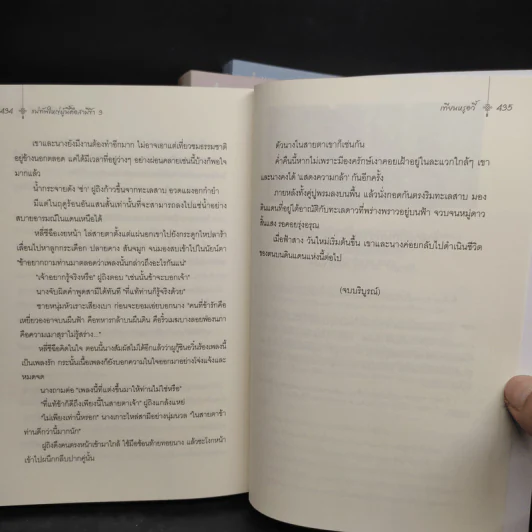 434
3
เขาและนางยังมีงานต้องทำอีกมาก ไม่อาจเอาแต่เที่ยวชมธรรมชาติ
อยู่ข้างนอกตลอด แต่ได้มีเวลาที่อยู่ว่างๆ อย่างผ่อนคลายเช่นนี้บ้างก็พอใจ
มากแล้ว
น้ำกระจายดัง 'ซ่า' ผู้ถิงก้าวขึ้นจากทะเลสาบ อวดแผงอกกำยำ
มีแค่ในฤดูร้อนอันแสนสั้นเท่านั้นที่จะสามารถลงไปแช่น้ำอย่าง
สบายอารมณ์ในแดนเหนือได้
หลี่ซีฉือเงยหน้า ไล่สายตาตั้งแต่แผ่นอกเขาไปยังกระดูกไหปลาร้า
เลื่อนไปหาลูกกระเดือก ปลายคาง สันจมูก จนมองสบเข้าไปในนัยน์ตา
"ข้าอยากถามท่านมาตลอดว่าเพลงนั้นกล่าวถึงอะไรกันแน่"
"เจ้าอยากรู้จริงหรือ" ผู้ถิงตอบ "เช่นนั้นข้าจะบอกเจ้า"
นางจับผิดคำพูดสามีได้ทันที "ที่แท้ท่านก็รู้จริงด้วย"
ชายหนุ่มหัวเราะเสียงเบา ก่อนจะยอมเอ่ยบอกนาง "คนที่ข้ารักคือ
เหยี่ยวองอาจบนผืนฟ้า คือทหารกล้าบนผืนดิน คือริ้วเมฆบางลอยฟ่องนภา
คือความเมาสุราไม่รู้สร่าง..."
หลี่ซีฉือคิดในใจ ตอนนี้นางสัมผัสไม่ได้อีกแล้วว่า
เป็นเพลงรัก กระนั้นเนื้อเพลงก็ยังบอกความในใจออกมาอย่างโจ่งแจ้งและ
หมดจด
นางถามต่อ "เพลงนี้ที่แต่งขึ้นมาให้ท่านไม่ใช่หรือ"
"ที่แท้ข้าก็ดีถึงเพียงนี้ในสายตาเจ้า" ผู้ถิงแกล้งแหย่
"ไม่เพียงเท่านี้หรอก" นางเกาะไหล่สามีอย่างนุ่มนวล "ในสายตาข้า
ท่านดีกว่านี้มากนัก"
ผู้ถิงดึงคนตรงหน้าเข้ามาใกล้ ใช้มือช้อนท้ายทอยนาง แล้วชะโงกหน้า
เข้าไปผนึกกลีบปากคู่นั้น
เทียนหรูอวี้ 435
ตัวนางในสายตาเขาก็เช่นกัน
ค่ำคืนนี้หากไม่เพราะมีองครักษ์เงาคอยเฝ้าอยู่ในละแวกใกล้ๆ เขา
และนางคงได้ 'แสดงความกล้า' กันอีกครั้ง
ภายหลังทั้งคู่ปูพรมลงบนพื้น แล้วนั่งกอดกันตรงริมทะเลสาบ มอง
สันแดนที่อยู่ใต้อาณัติกับทะเลดาวที่พร่างพราวอยู่บนฟ้า จวบจนหมู่ดาว
สิ้นแสง รอคอยรุ่งอรุณ
เมื่อฟ้าสาง วันใหม่เริ่มต้นขึ้น เขาและนางค่อยกลับไปดำเนินชีวิต
ของตนบนดินแดนแห่งนี้ต่อไป
(จบบริบูรณ์)